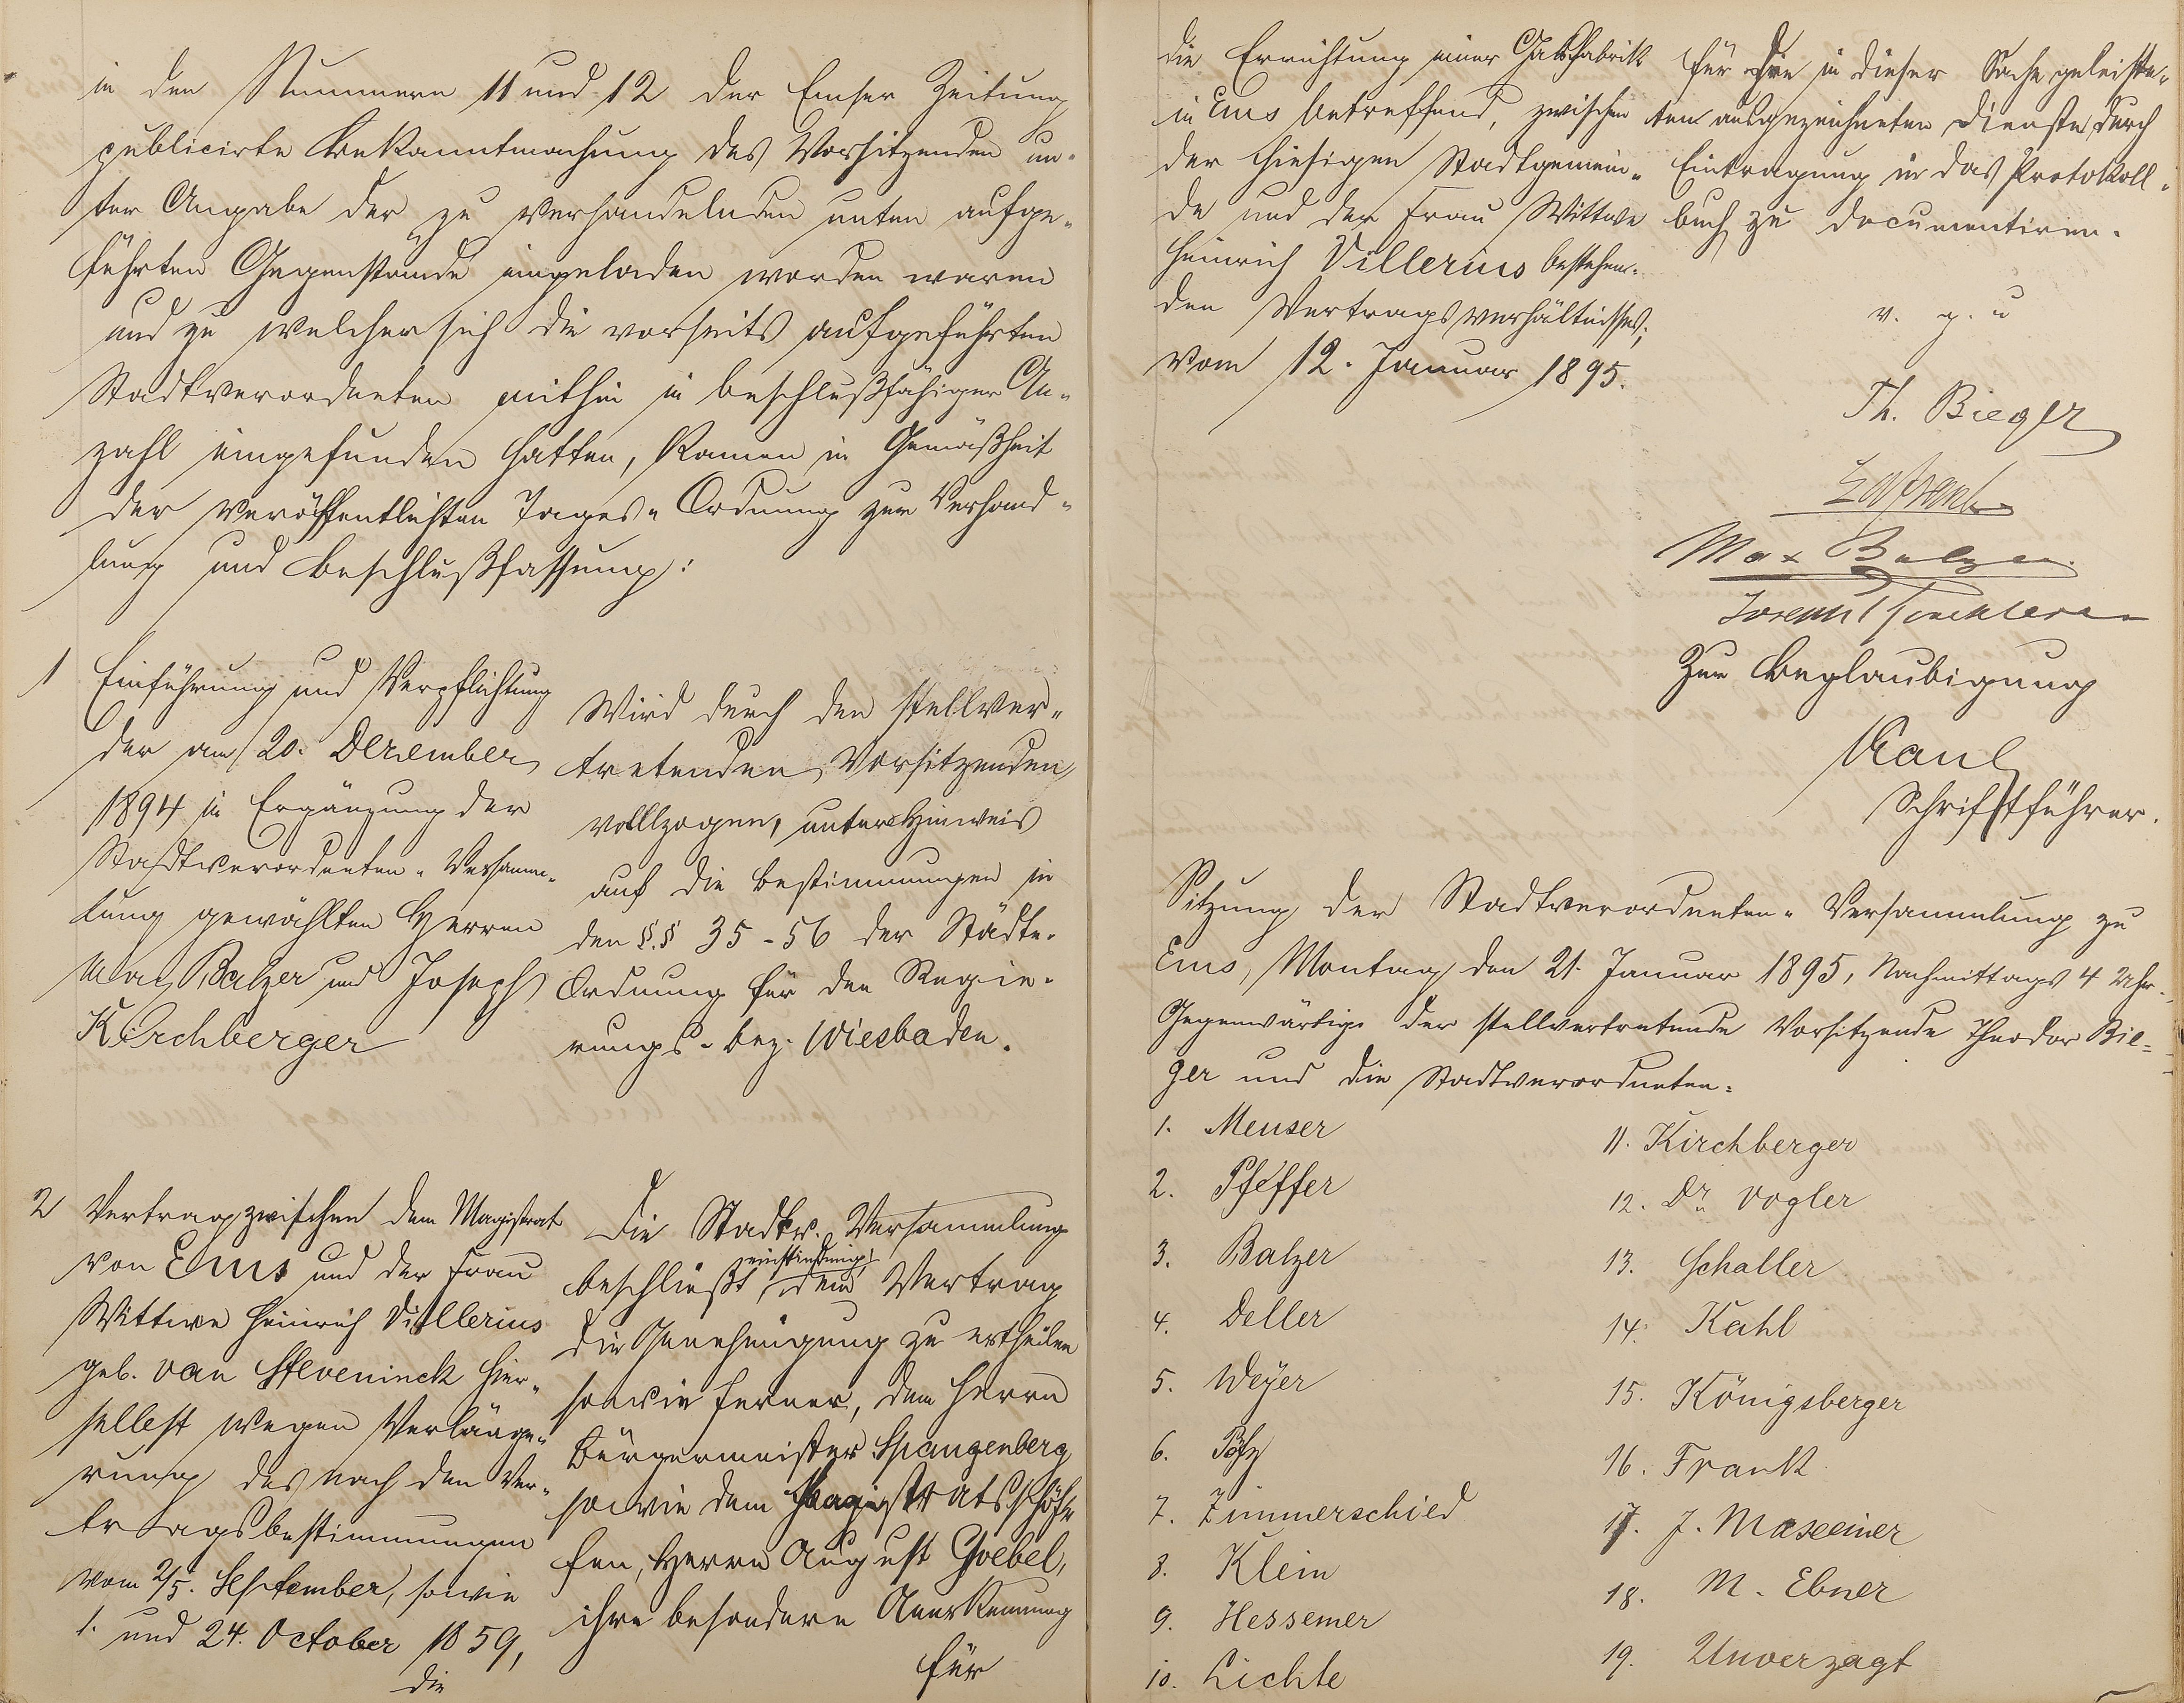 in den Nummern 11 und 12 der Emser Zeitung
publicirte Bekanntmachung des Vorsitzenden un-
ter Angabe der zu verhandelnden unten aufge-
führten Gegenstände eingeladen worden waren
und zu welcher sich die vorseits aufgeführten
Stadtverordneten mithin in beschlußfähiger An-
zahl eingefunden hatten, kamen in Gemäßheit
der veröffentlichten Tages-Ordnung zur Verhand-
lung und Beschlußfassung:
1 Einführung und Verpflichtung
der am 20. Dezember
1894 in Ergänzung der
Stadtverordneten-Versamm-
lung gewählten Herren
Max Balzer und Joseph
Kirchberger
Wird durch den stellver-
tretenden Vorsitzenden
vollzogen, unter Hinweis
auf die Bestimmungen in
den §.§ 35-56 der Städte-
Ordnung für den Regie-
rungs-bez. Wiesbaden.
2 Vertrag zwischen dem Magistrat
von Ems und der Frau
Wittwe Heinrich Villerius
geb. van Steveninck hier-
selbst wegen Verlänge-
rung des nach den Ver-
tragsbestimmungen
vom 2/5. September, sowie
1. und 24. October 1859,
die
Die Stadtv. Versammlung
beschließt einstimmig dem Vertrag
die Genehmigung zu ertheilen
sowie ferner, dem Herrn
Bürgermeister Spangenberg
sowie dem Magistratsschöf-
fen, Herrn August Goebel,
ihre besondere Anerkennung
für
die Errichtung einer Gasfabrik
in Ems betreffend, zwischen
der hiesigen Stadtgemein-
de und der Frau Wittwe
Heinrich Villerius bestehen-
den Vertragsverhältnisses;
vom 12. Januar 1895.
für die in dieser Sache geleiste-
ten ausgezeichneten Dienste durch
Eintragung in das Protokoll-
buch zu documentiren.
v. g. u
Th. Bieger
Max Balzer
Joseph Kirchberger
Zur Beglaubigung
Kaul
Schriftführer.
Sitzung der Stadtverordneten-Versammlung zu
Ems, Montag den 21. Januar 1895, Nachmittags 4 Uhr.
Gegenwärtig: der stellvertretende Vorsitzende Theodor Bie-
ger und die Stadtverordneten:
1. Meuser
2. Pfeffer
3. Balzer
4. Deller
5. Weyer
6.
7. Zimmerschied
8. Klein
9. Hessemer
10. Lichte
11. Kirchberger
12. Dr. Vogler
13. Schaller
14. Kahl
15. Königsberger
16. Frank
17. J. Maxeiner
18. M. Ebner
19. Unverzagt